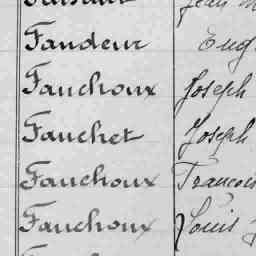 Faudeur Eug
Fauchoux Joseph
Fauchet Joseph
Fauchoux Francois
Fauchoux Louis